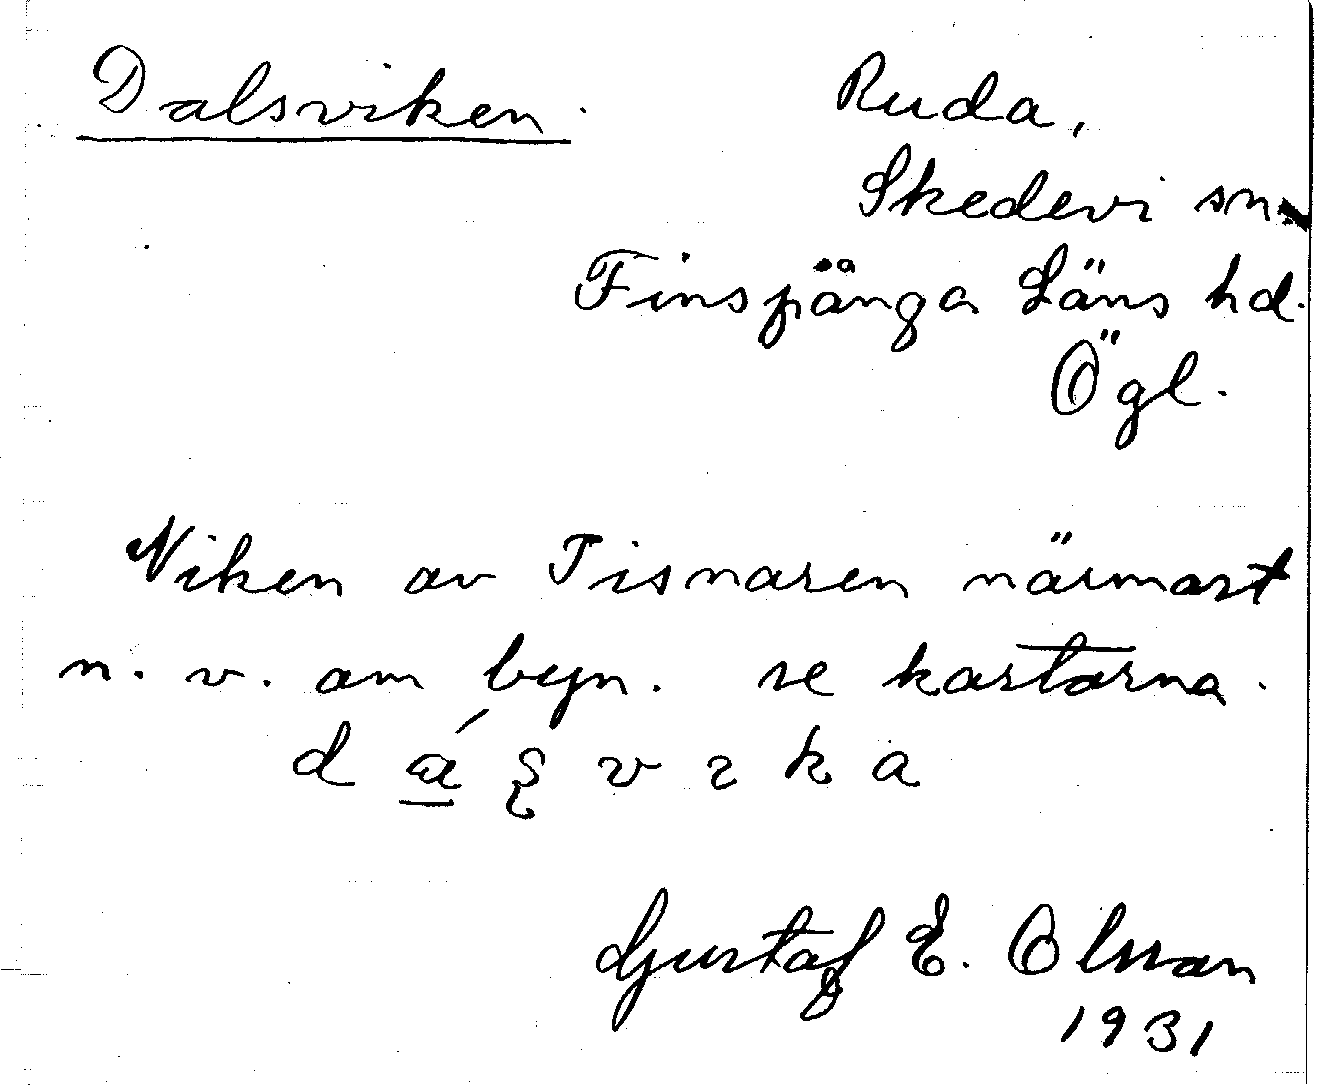 Dalsviken. Ruda,
Skedevi sn.
Finspånga Läns hd.
Ögl.
Viken av Tisnaren närmast
n. v. om byn. se kartorna.
Gustaf E. Olsson
1931